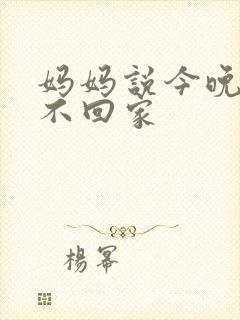 妈妈説今晚
不回家
楊幂